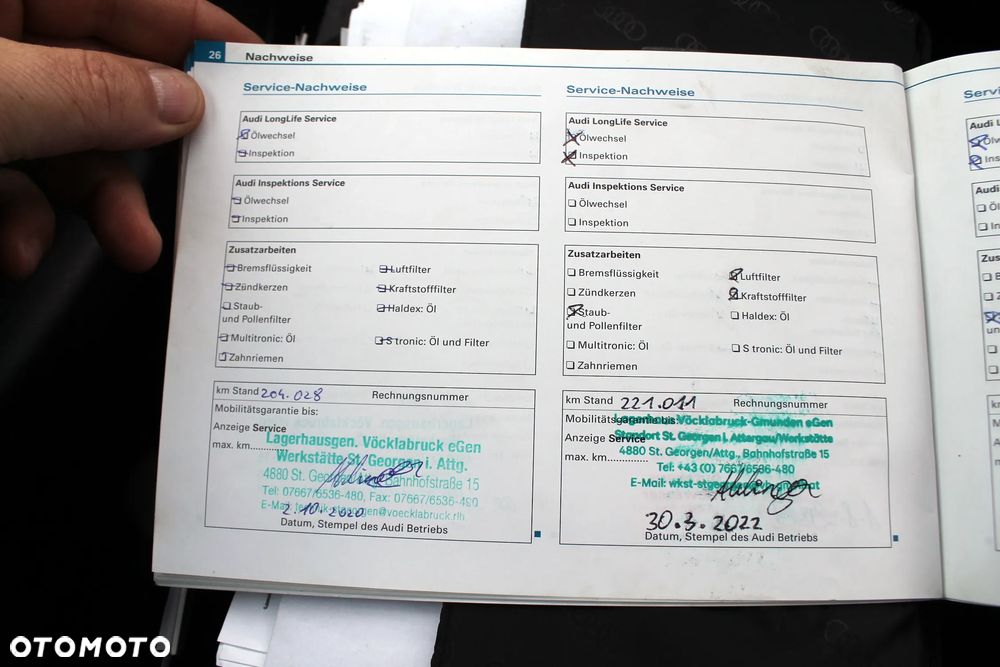 26 Nachweise
Service-Nachweise
Audi LongLife Service
Ölwechsel
Inspektion
Audi Inspektions Service
Ölwechsel
Inspektion
Zusatzarbeiten
Bremsflüssigkeit
Luftfilter
Zündkerzen
Kraftstofffilter
Staub-
und Pollenfilter
Haldex: Öl
Multitronic: Öl
S tronic: Öl und Filter
Zahnriemen
km Stand 204.028
Rechnungsnummer
Mobilitätsgarantie bis:
Anzeige Service
max. km
Lagerhausgen. Vöcklabruck eGen
Werkstätte St. Georgen i. Attg.
4880 St. Georgen Bahnhofstraße 15
Tel: 07667/6536-480, Fax: 07667/6536-490
@voecklabruck.rlh
2.10.2020
Datum, Stempel des Audi Betriebs
Service-Nachweise
Audi LongLife Service
Ölwechsel
Inspektion
Audi Inspektions Service
Ölwechsel
Inspektion
Zusatzarbeiten
Bremsflüssigkeit
Luftfilter
Zündkerzen
Kraftstofffilter
Staub-
und Pollenfilter
Haldex: Öl
Multitronic: Öl
S tronic: Öl und Filter
Zahnriemen
km Stand 221.011
Rechnungsnummer
Mobilitätsgarantie bis:
Lagerhaus Vöcklabruck-Gmunden eGen
Anzeige Service
Standort St. Georgen i. Attergau/Werkstätte
max. km
4880 St. Georgen/Attg., Bahnhofstraße 15
Tel: +43 (0) 7667/6536-480
E-Mail:
30.3.2022
Datum, Stempel des Audi Betriebs
OTOMOTO